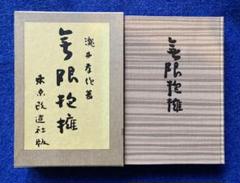 瀧井孝作著
無限抱擁
東京改造社版
無限抱擁